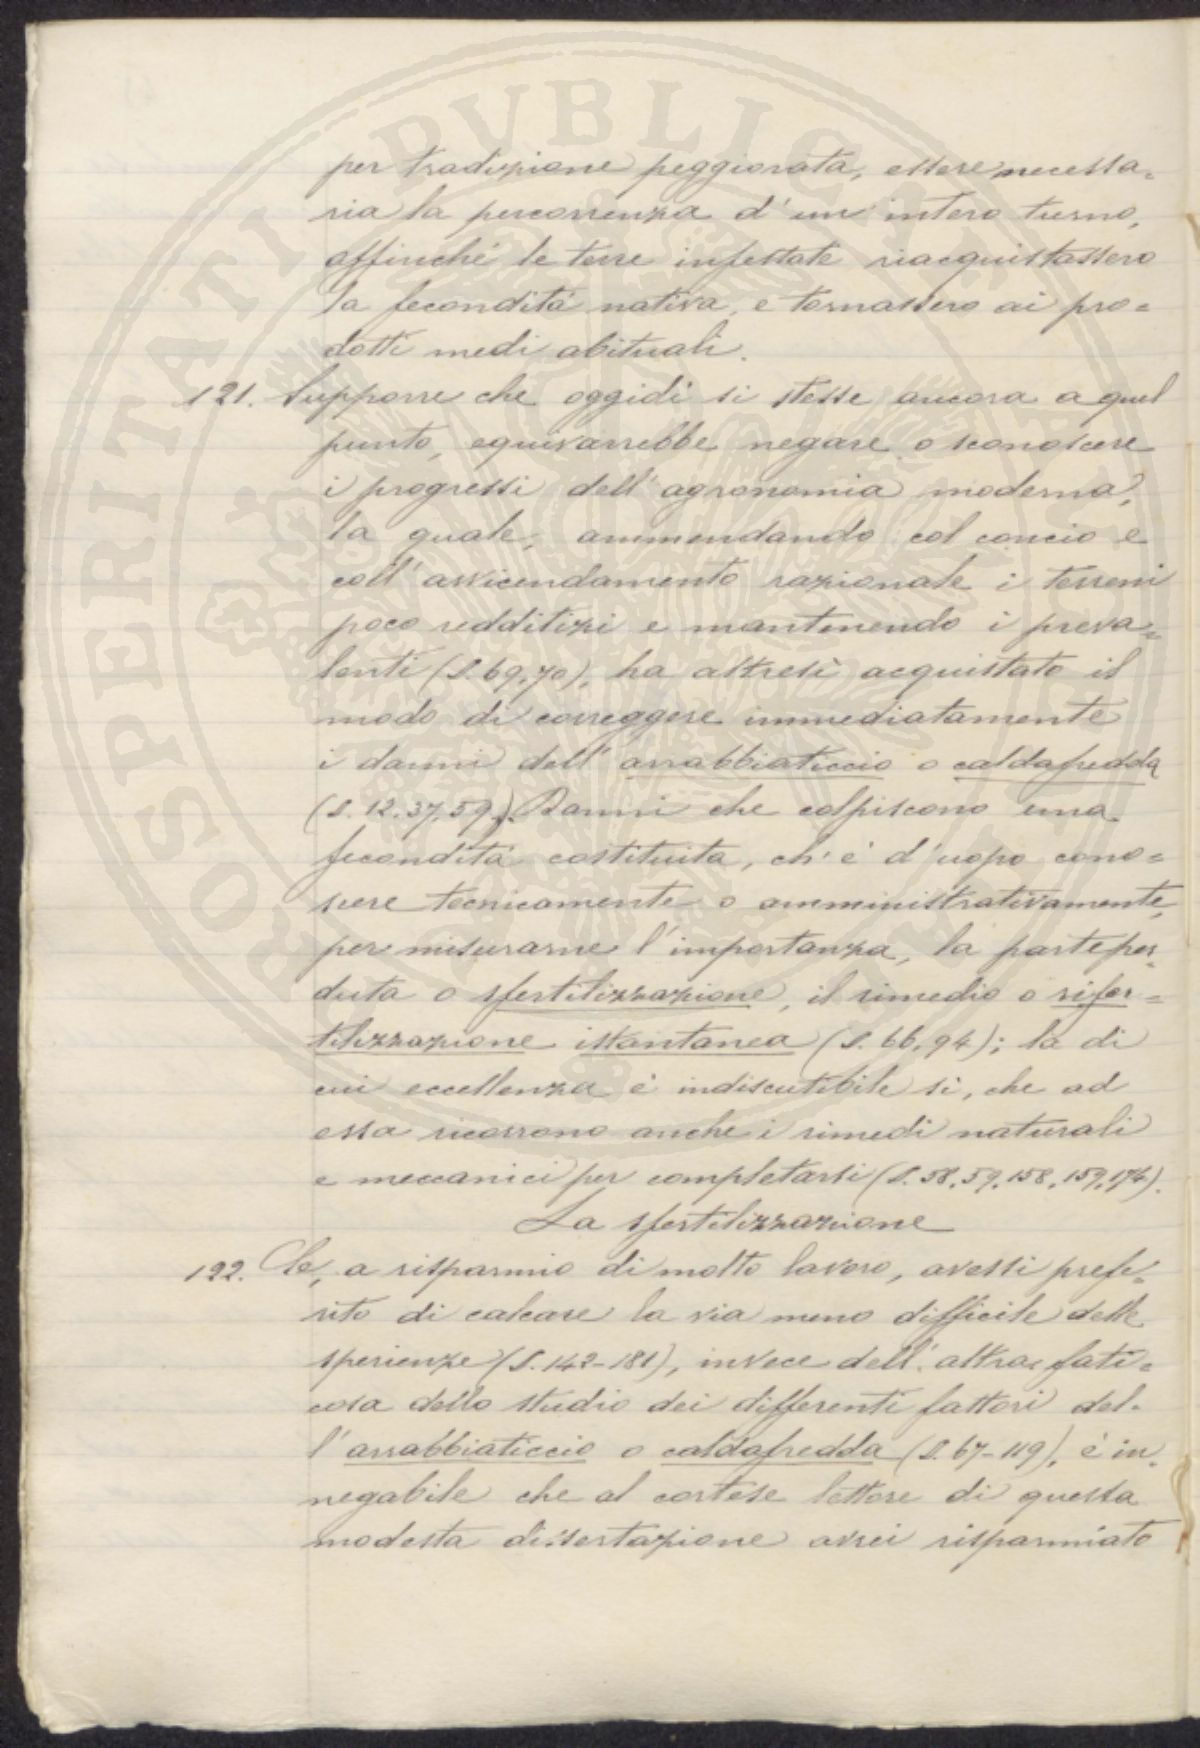 PROSPERITATI PUBLICAE AUGENDAE
per tradizione peggiorata, essere necessa=
ria la percorrenza d'un intero turno,
affinché le terre infestate riacquistassero
la fecondità nativa, e tornassero ai pro=
dotti medi abituali.
121. Supporre che oggidì si stesse ancora a quel
punto, equivarrebbe negare o sconoscere
i progressi dell'agronomia moderna,
la quale, ammendando col concio e
coll'avvicendamento razionale i terreni
poco redditizi e mantenendo i preva=
lenti (S. 69,70), ha altresì acquistato il
modo di correggere immediatamente
i danni dell'arrabbiaticcio o caldafredda
(S. 12.37.59.). Danni che colpiscono una
fecondità costituita, ch'è d'uopo cono=
scere tecnicamente o amministrativamente,
per misurarne l'importanza, la parte per=
duta o sfertilizzazione, il rimedio o rifer=
tilizzazione istantanea (S. 66,94); la di
cui eccellenza è indiscutibile sì, che ad
essa ricorrono anche i rimedi naturali
e meccanici per completarsi (S. 58,59,158,159,174).
La sfertilizzazione
122. Se, a risparmio di molto lavoro, avessi prefe=
rito di calcare la via meno difficile delle
sperienze (S. 142-181), invece dell'altra fati=
cosa dello studio dei differenti fattori del=
l'arrabbiaticcio o caldafredda (S. 67-119), è in=
negabile che al cortese lettore di questa
modesta dissertazione avrei risparmiato